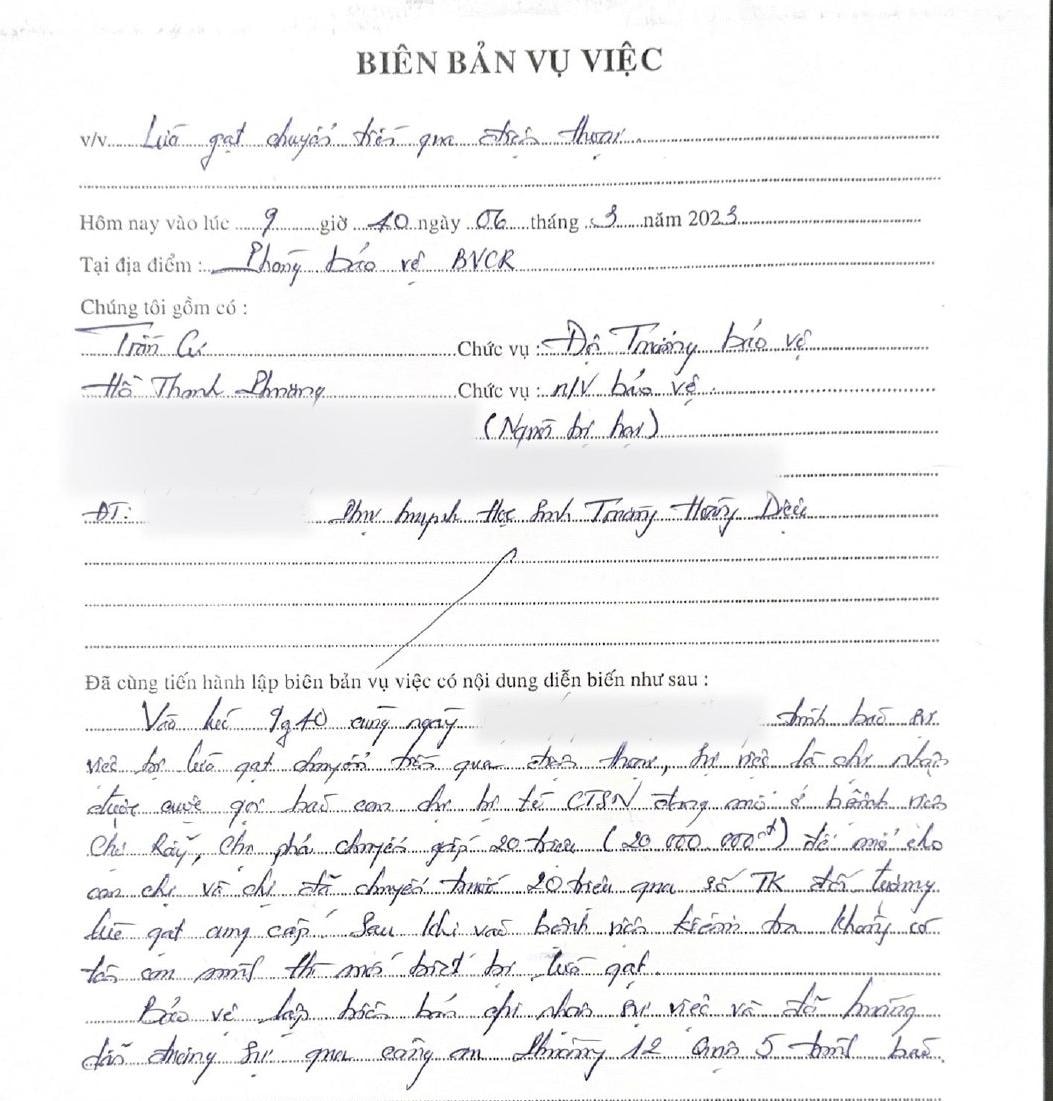 BIÊN BẢN VỤ VIỆC
v/v Lừa gạt chuyển tiền qua điện thoại
Hôm nay vào lúc 9 giờ 40 ngày 06 tháng 3 năm 2023
Tại địa điểm : Phòng bảo vệ BVCR
Chúng tôi gồm có :
Trần Cứ Chức vụ : Đội Trưởng bảo vệ
Hồ Thanh Phương Chức vụ : n/v bảo vệ
(Người bị hại)
ĐT: Phụ huynh Học Sinh Trường Hoàng Diệu
Đã cùng tiến hành lập biên bản vụ việc có nội dung diễn biến như sau :
Vào lúc 9g40 cùng ngày trình báo sự
việc bị lừa gạt chuyển tiền qua điện thoại, sự việc là chị nhận
được cuộc gọi báo con chị bị té CTSN đang mổ ở bệnh viện
Chợ Rẫy, Chị phải chuyển gấp 20 triệu (20 000 000đ) để mổ cho
con chị và chị đã chuyển trước 20 triệu qua số TK đối tượng
lừa gạt cung cấp. Sau khi vào bệnh viện kiểm tra không có
tên con mình thì mới biết bị lừa gạt.
Bảo vệ lập biên bản ghi nhận sự việc và đã hướng
dẫn đương sự qua công an Phường 12 Quận 5 trình báo.